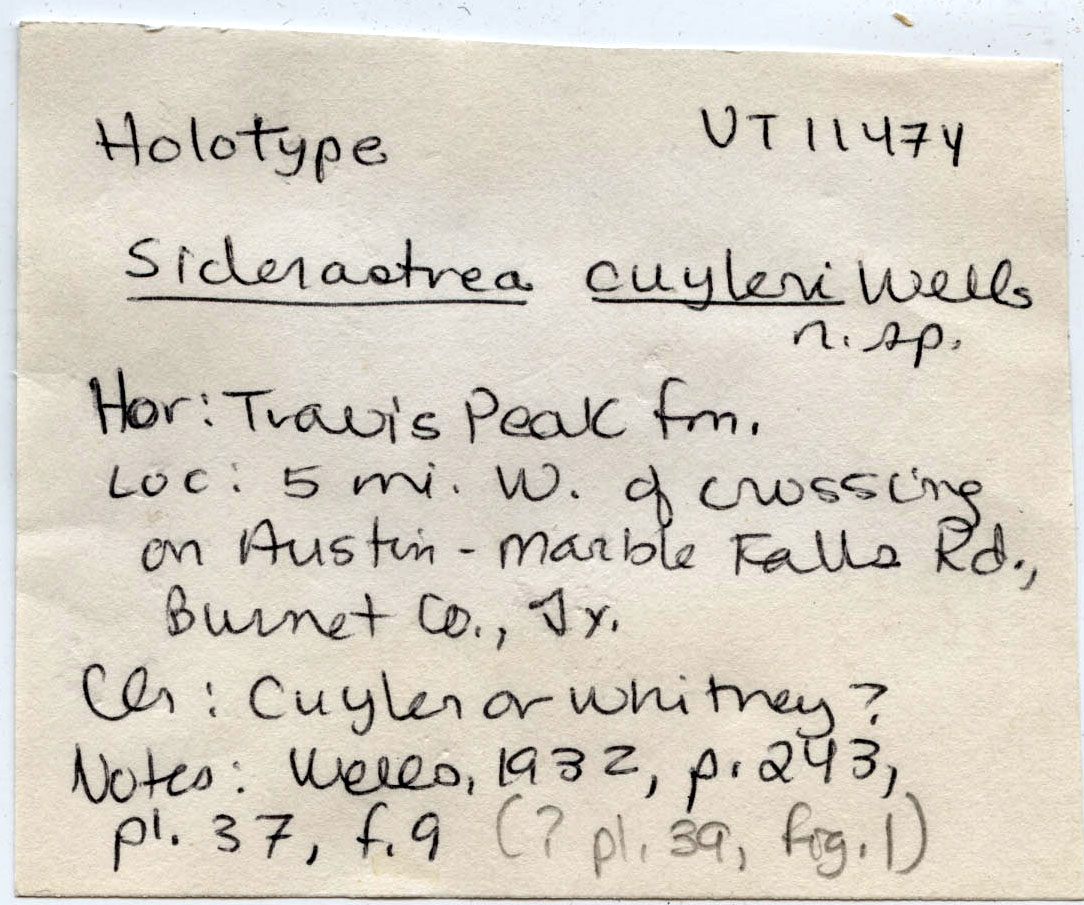 Holotype UT 11474
Siderastrea cuyleri Wells
n. sp.
Hor: Travis Peak fm.
Loc: 5 mi. W. of crossing
on Austin - Marble Falls Rd.,
Burnet Co., Tx.
Clr: Cuyler or Whitney?
Notes: Wells, 1932, p. 243,
pl. 37, f. 9 (? pl. 39, fig. 1)